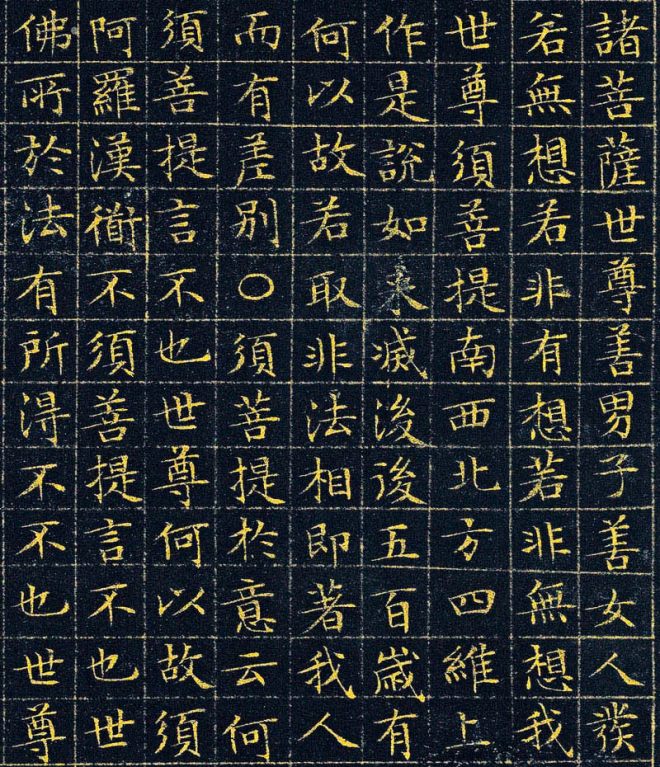 諸菩薩世尊善男子善女人發
若無想若非有想若非無想我
世尊須菩提南西北方四維上
作是說如來滅後後五百歲有
何以故若取非法相即著我人
而有差別〇須菩提於意云何
須善提言不也世尊何以故須
阿羅漢衜不須善提言不也世
佛所於法有所得不不也世尊